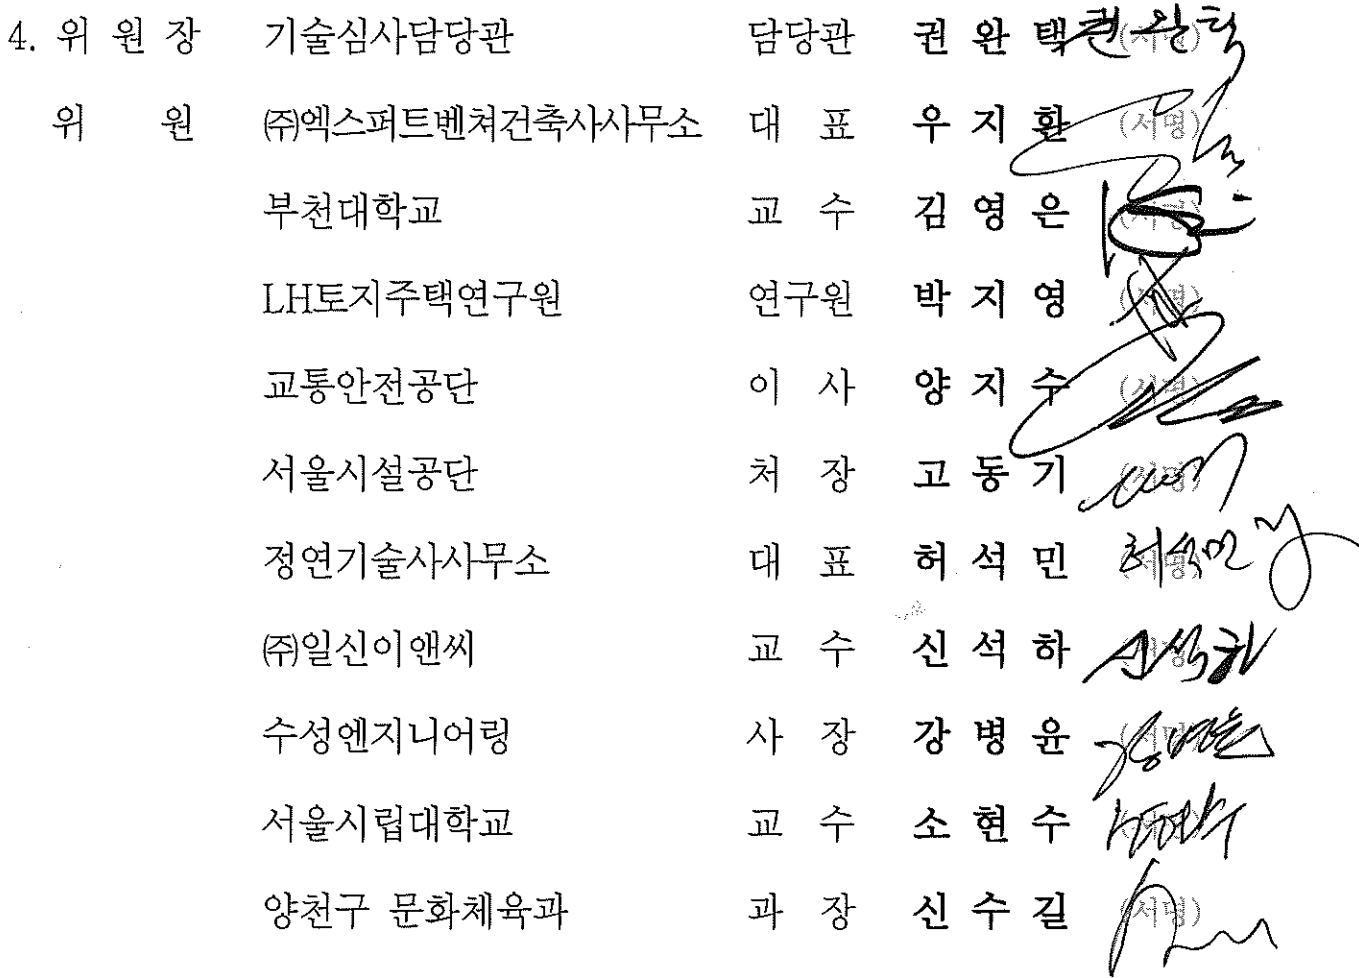 4. 위 원 장 기술심사담당관 담당관 권 완 택 (서명) 권완택
위 원 ㈜엑스퍼트벤쳐건축사사무소 대 표 우 지 환 (서명)
부천대학교 교 수 김 영 은 (서명)
LH토지주택연구원 연구원 박 지 영 (서명)
교통안전공단 이 사 양 지 수 (서명)
서울시설공단 처 장 고 동 기 (서명)
정연기술사사무소 대 표 허 석 민 (서명) 허석민
㈜일신이앤씨 교 수 신 석 하 (서명) 신석하
수성엔지니어링 사 장 강 병 윤 (서명) 강병윤
서울시립대학교 교 수 소 현 수 (서명) 소현수
양천구 문화체육과 과 장 신 수 길 (서명)